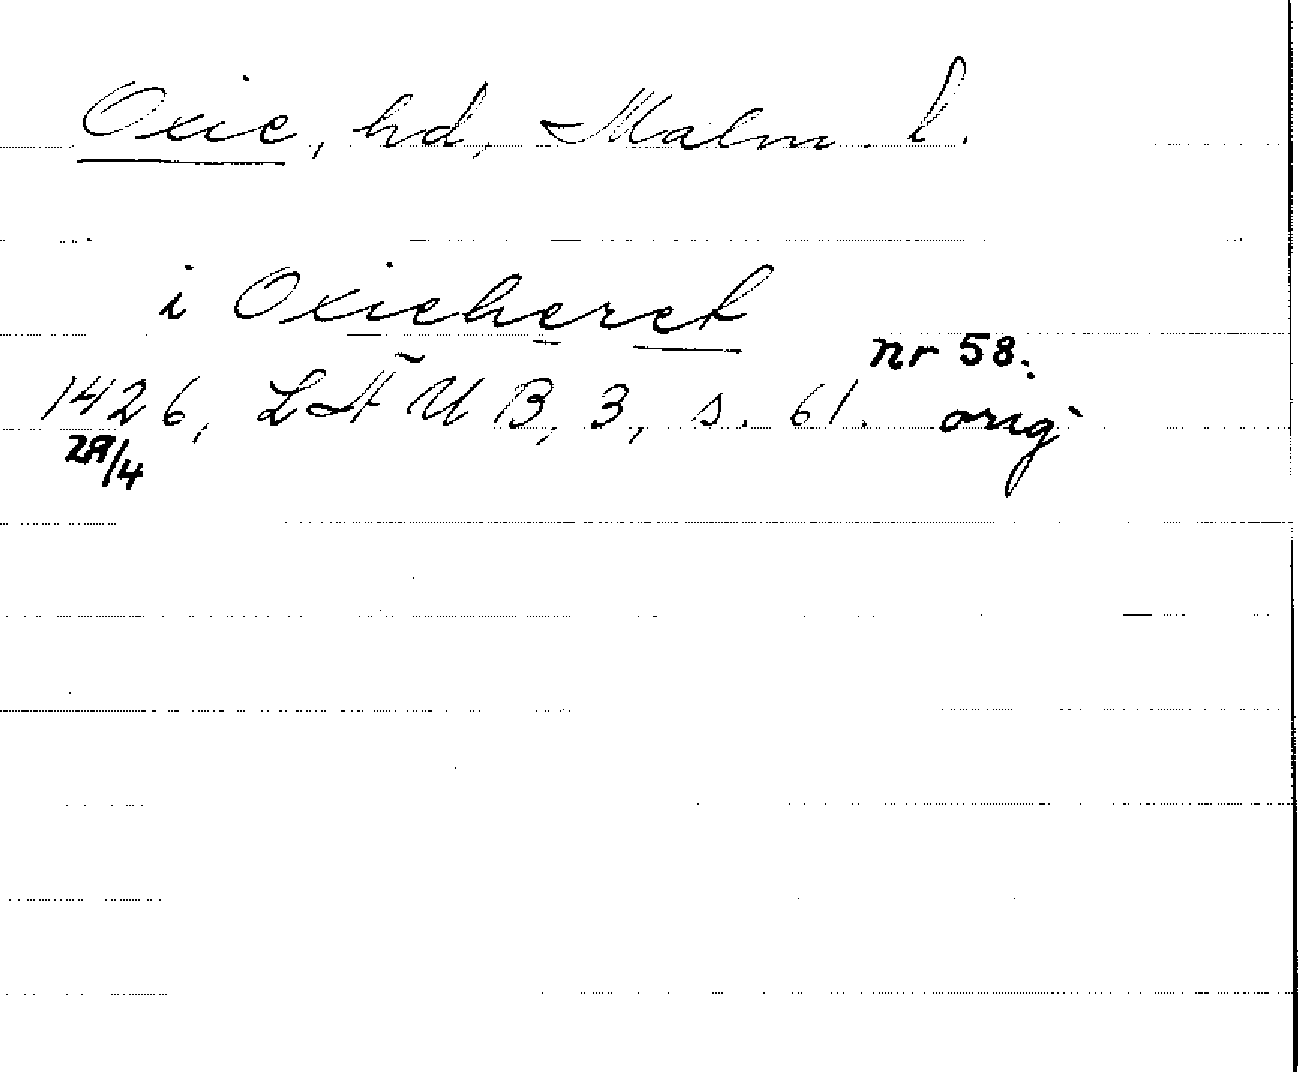 Oxie, hd, Malm. l.
i Oxieheret
nr 58.
1426, LÄUB, 3, s. 61. orig
29/4